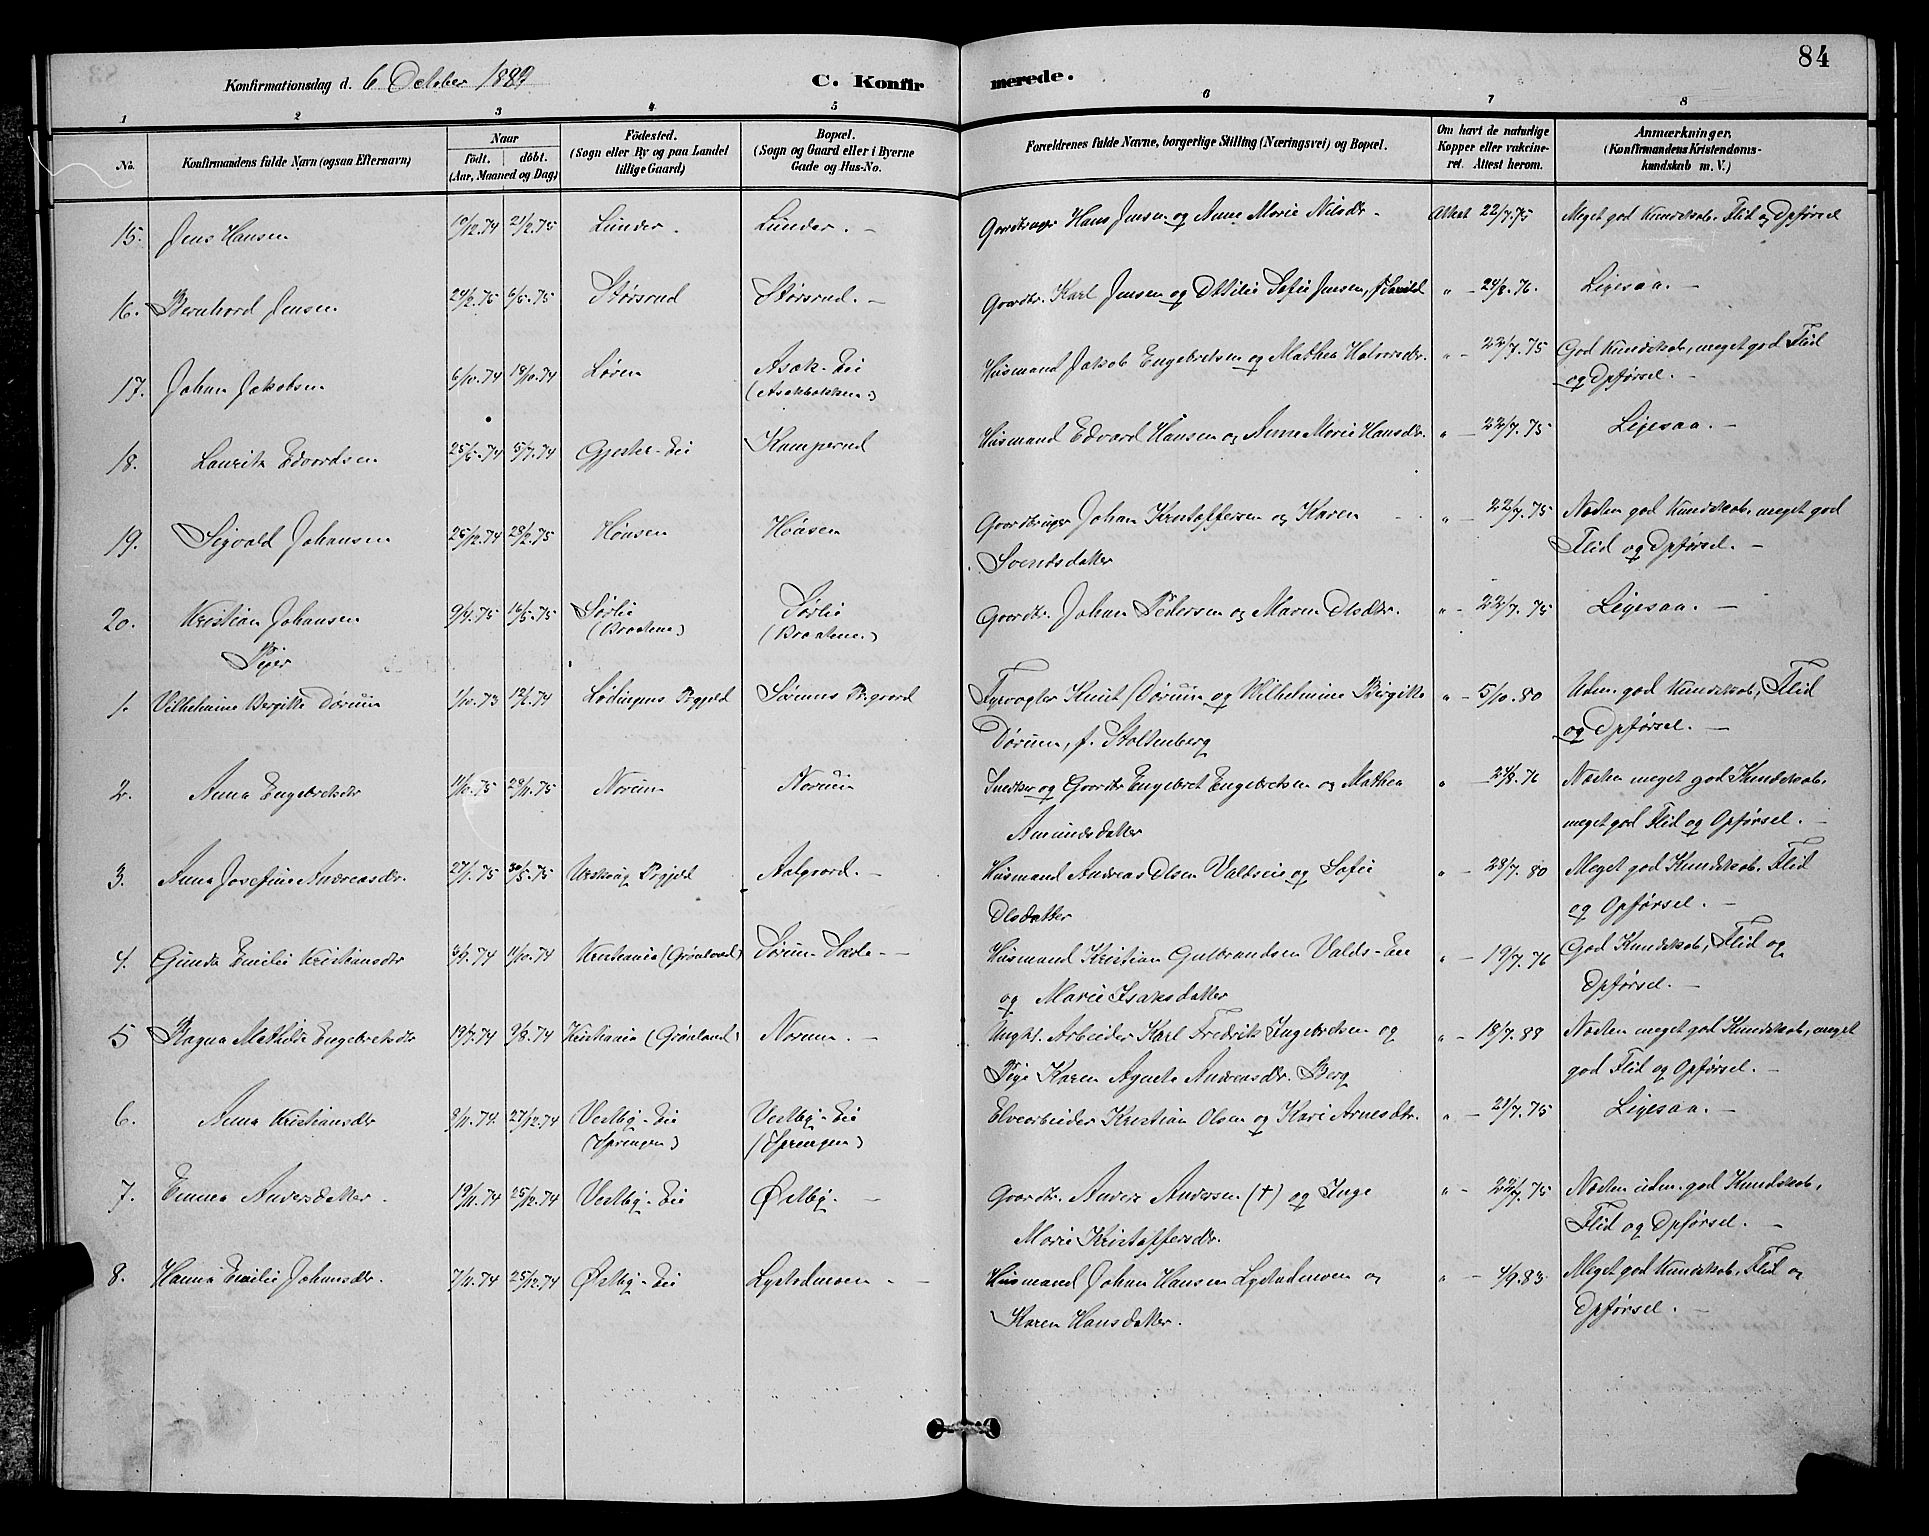 84
Konfirmationsdag d. 6 October 1889
C. Konfirmerede.
1 2 3 4 5 6 7 8
No.
Konfirmandens fulde Navn (ogsaa Efternavn)
Naar
födt. döbt.
(Aar, Maaned og Dag)
Födested.
(Sogn eller By og paa Landet
tillige Gaard)
Bopæl.
(Sogn og Gaard eller i Byerne
Gade og Hus-No.
Forældrenes fulde Navne, borgerlige Stilling (Næringsvei) og Bopæl.
Om havt de naturlige
Kopper eller vakcine-
ret. Attest herom.
Anmærkninger.
(Konfirmandens Kristendoms-
kundskab m. V.)
15. Jens Hansen 19/12.74 21/2.75 Lunder. Lunder. — Gaardbruger Hans Jensen og Anne Marie Nilsdr. Attest 22/7.75 Meget god Kundskab. Flid og Opførsel
16. Bernhard Jensen 24/2.75 6/5.75 Størsrud Størsrud. — Gaardbr. Karl Jensen og Ottilie Sofie Jensen, f. " — 24/8.76. Ligesaa. —
17. Johan Jakobsen 6/10.74 18/10.74 Løren Asak-Eie Husmand Jakob Engebretsen og Mathea Halvorsdr. " — 22/7.75 God Kundskab, meget god Flid
(Asakbakken) og Opførsel. —
18. Lauritz Edvardsen 25/5.74 5/7.74 Gjester-Eie Kamperud Husmand Edvard Hansen og Anne Marie Hansdr. " — 22/7.75 Ligesaa. —
19. Sigvald Johansen 25/12.74 28/2.75 Hønsen Høåsen Gaardbruger Johan Kristoffersen og Karen " — 22/7.75 Næsten god Kundskab, meget god
Svendsdatter Flid og Opførsel. —
20. Kristian Johansen 9/4.75 16/5.75 Sørlie Sørlie Gaardbr. Johan Pedersen og Maren Olsdtr. " — 22/7.75 Ligesaa. —
(Braatene) (Braatene)
Piger
1. Vilhelmine Bergitte Dørum 1/10.73 12/2.74 Lødingens Prgjeld Sørums Prgaard Fyrvogter Knut Dørum og Vilhelmine Birgitte " — 5/10.80 Udm. god Kundskab, Flid
Dørum, f. Stoltenberg og Opførsel. —
2. Anna Engebretsdtr 11/10.75 28/11.75 Norum Norum Snedker og Gaardbr Engebret Engebretsen og Mathea " — 24/8.76 Næsten meget god Kundskab,
Amundsdatter meget god Flid og Opførsel. —
3. Anna Josefine Andreasdr. 27/1.75 30/5.75 Urskoug Prgjeld Aalgaard. — Husmand Andreas Olsen Valdseie og Sofie " — 28/7.80 Meget god Kundskab. Flid
Olsdatter og Opførsel. —
4. Gunda Emilie Kristiansdtr 3/9.74 11/10.74 Kristiania (Grønland) Sørum Søole — Husmand Kristian Gulbrandsen Valds-Eie " — 19/7.76 God Kundskab, Flid og
og Marie Isaksdatter Opførsel. —
5 Ragna Mathilde Engebretsdtr 19/7.74 9/8.74 Kristiania (Grønland) Norum. — Ungk. Arbeider Karl Fredrik Ingebretsen og " — 18/7.88 Næsten meget god Kundskab, meget
Pige Karen Agnete Andreasdr. Berg god Flid og Opførsel. —
6. Anna Kristiansdtr 8/11.74. 27/12.74 Vestby-Eie Vestby-Eie Elvearbeider Kristian Olsen og Kari Arnesdtr. " — 21/7.75 Ligesaa. —
(Sprengen) (Sprengen)
7. Emma Andersdatter. 19/11.74 25/12.74 Vestby-Eie Østby. — Gaardbr. Anders Andersen (†) og Inge " — 22/7.75 Næsten udm. god Kundskab,
Marie Kristoffersdr. Flid og Opførsel. —
8. Hanna Emilie Johansdr. 7/11.74 25/12.74 Østby-Eie Lystadmoen. — Husmand Johan Hansen Lystadmoen og " — 4/9.83. Meget god Kundskab, Flid og
Karen Hansdatter. Opførsel. —